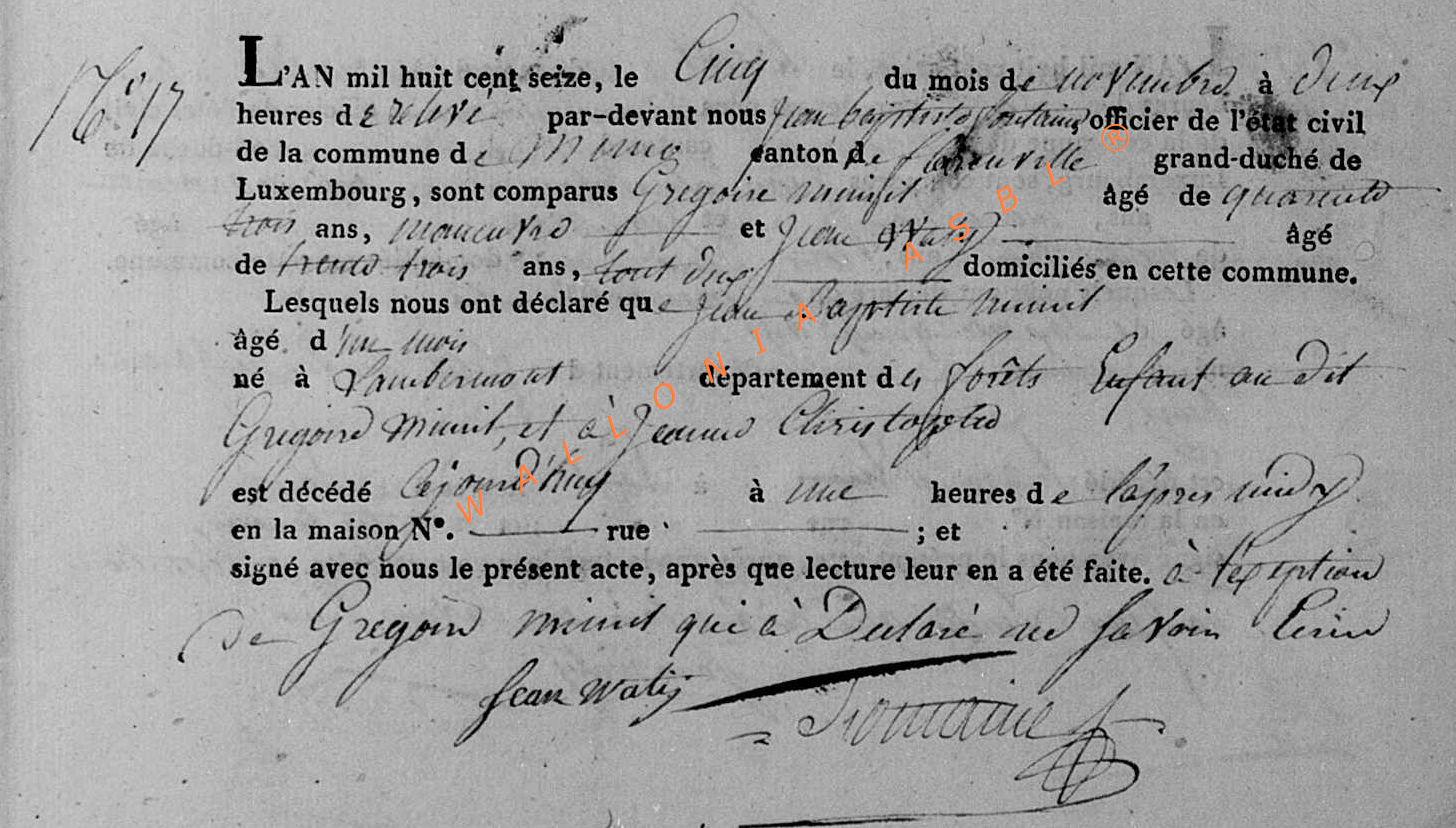 N° 17
L'AN mil huit cent seize, le Cinq du mois de novembre à deux
heures de relevé par-devant nous jean baptiste fontaine officier de l'état civil
de la commune de Muno canton de florenville grand-duché de
Luxembourg, sont comparus Gregoire minit âgé de quarante
trois ans, manœuvre et Jean Waty âgé
de trente trois ans, tout deux domiciliés en cette commune.
Lesquels nous ont déclaré que jean Baptiste minit
âgé d'un mois
né à Lambermont département des forêts Enfant au dit
Gregoire minit, et à Jeanne Christophe
est décédé cejourd'huy à une heures de l'apres midy
en la maison N°. rue ; et
signé avec nous le présent acte, après que lecture leur en a été faite. à l'exeption
de Gregoire minit qui à Declaré ne savoir Ecrire
jean waty
WALLONIA ASBL ®